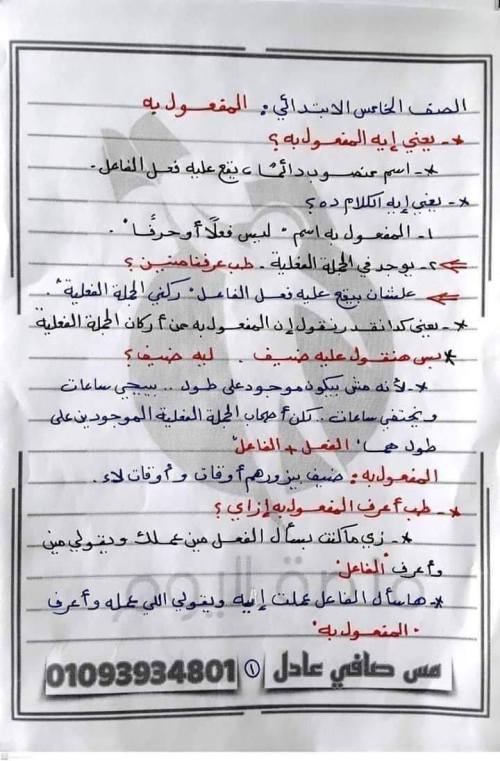 الصف الخامس الابتدائي: المفعول به
*- يعني إيه المفعول به؟
*- اسم منصوب دائمًا، يقع عليه فعل الفاعل.
*- يعني إيه الكلام ده؟
١- المفعول به اسم "ليس فعلًا أو حرفًا".
٢- يوجد في الجملة الفعلية. طب عرفنا منين؟
علشان بيقع عليه فعل الفاعل "ركني الجملة الفعلية".
*- يعني كدا نقدر نقول إن المفعول به من أركان الجملة الفعلية
* بس هنقول عليه ضيف. ليه ضيف؟
*- لأنه مش بيكون موجود على طول .. بييجي ساعات
ويختفي ساعات .. لكن أصحاب الجملة الفعلية الموجودين على
طول هما "الفعل + الفاعل"
المفعول به: ضيف بيزورهم أوقات وأوقات لاء.
*- طب أعرف المفعول به إزاي؟
*- زي ما كنت بسأل الفعل مين عملك ويقولي مين
وأعرف "الفاعل"
* هاسأل الفاعل عملت إيه ويقولي اللي عمله وأعرف
"المفعول به"
مس صافي عادل ١ 01093934801